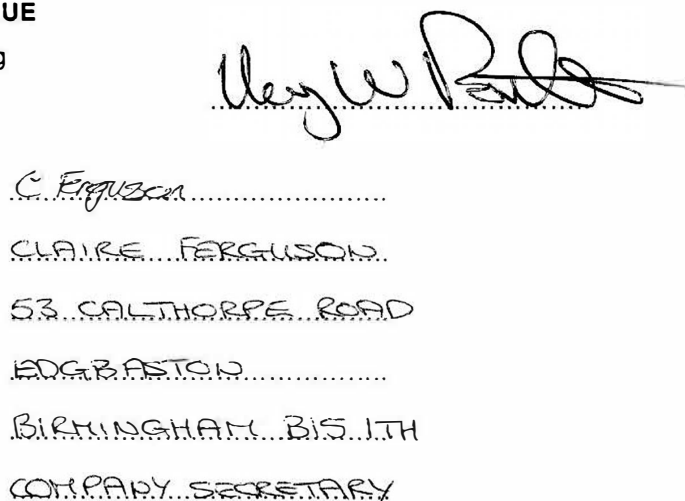 UE
g
C Ferguson
CLAIRE FERGUSON
53 CALTHORPE ROAD
EDGBASTON
BIRMINGHAM B15 1TH
COMPANY SECRETARY